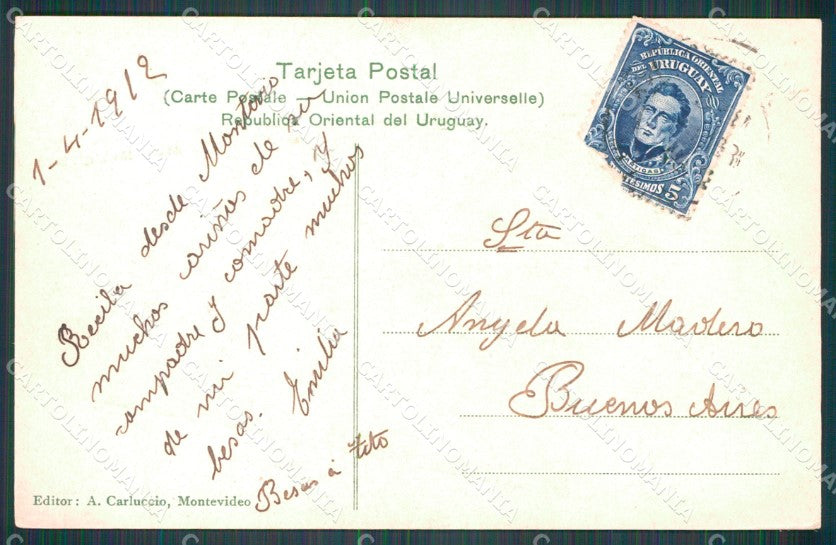 1-4-1912
Tarjeta Postal
(Carte Postale — Union Postale Universelle)
Republica Oriental del Uruguay.
REPUBLICA ORIENTAL
DEL URUGUAY
ARTIGAS
ESIMOS 5
Reciba desde Montevio
muchos cariños de su
compadre y comadre, y
de mi parte muchos
besos. Emilia
Besos á Tito
Srta
Angela Madero
Buenos Aires
Editor: A. Carluccio, Montevideo
CARTOLINOMANIA